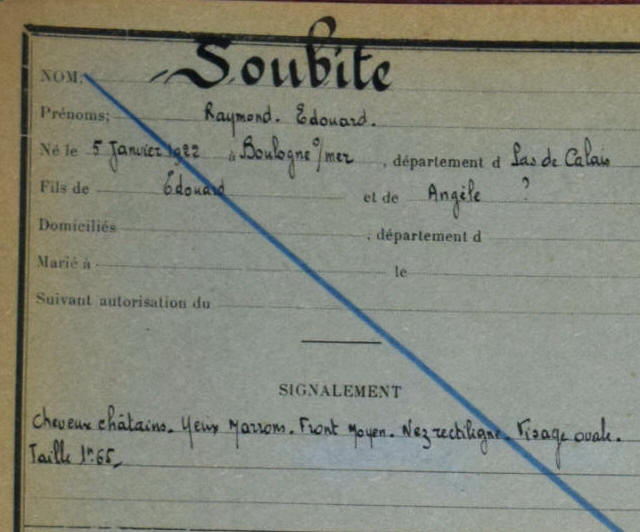 NOM: Soubite
Prénoms; Raymond. Edouard.
Né le 5 Janvier 1922 à Boulogne s/mer, département d Pas de Calais
Fils de Édouard et de Angèle ?
Domiciliés , département d
Marié à le
Suivant autorisation du
SIGNALEMENT
Cheveux châtains. Yeux Marrons. Front Moyen. Nez rectiligne. Visage ovale.
Taille 1m65